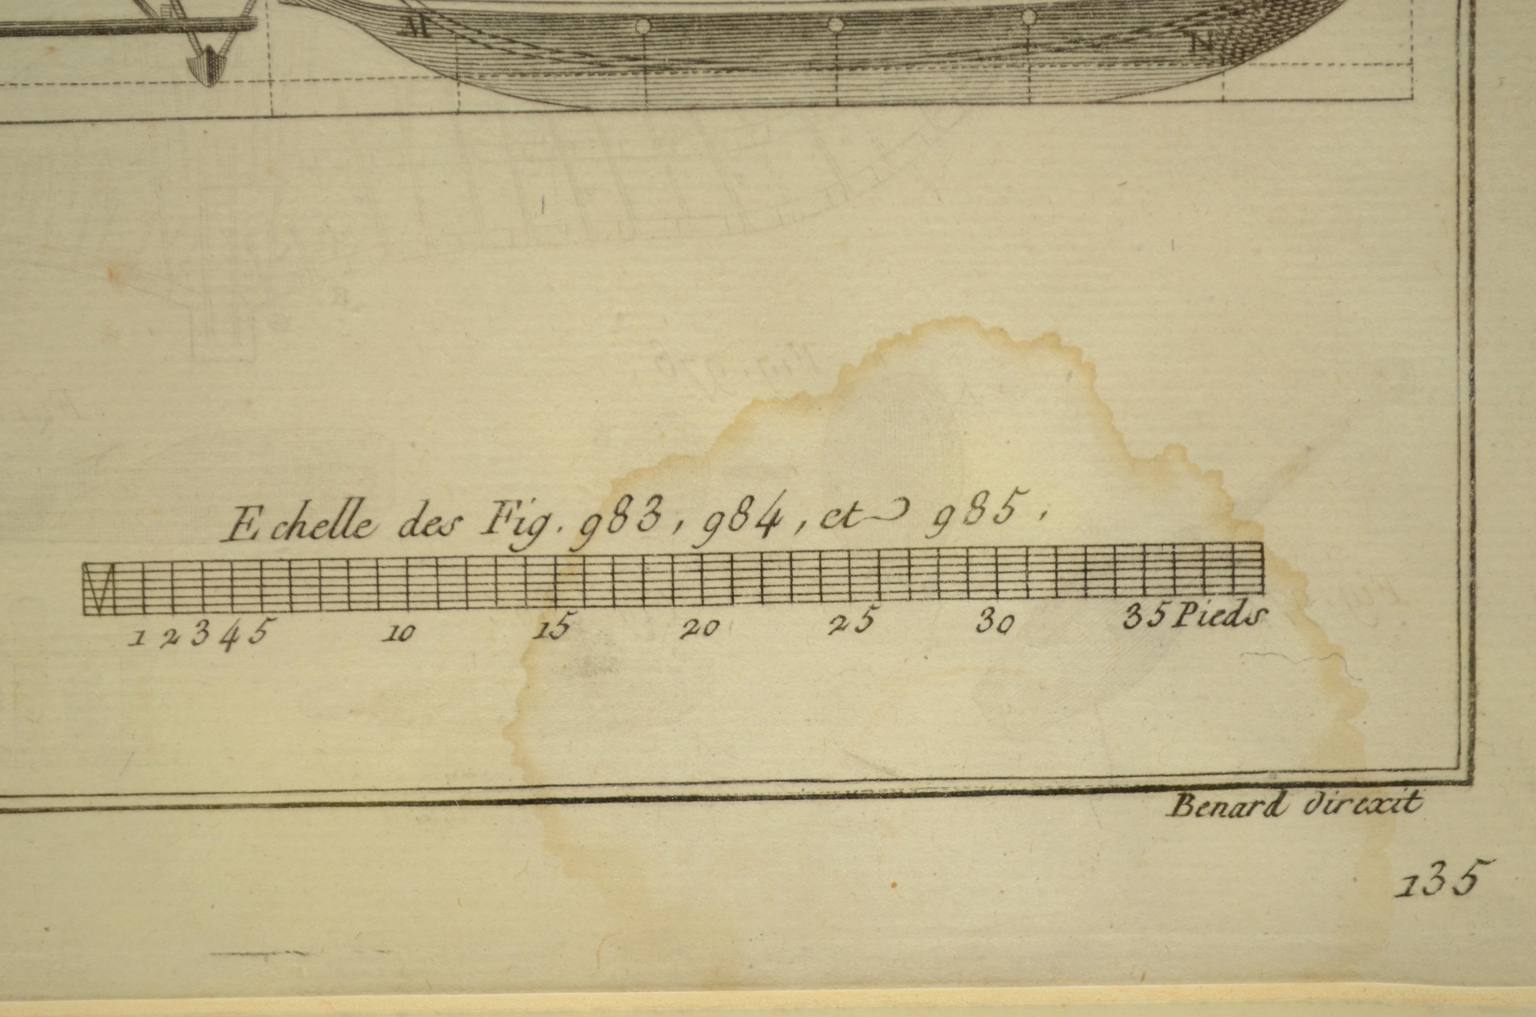 M N
Echelle des Fig. 983, 984, et 985.
1 2 3 4 5 10 15 20 25 30 35 Pieds
Benard direxit
135